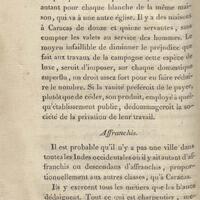 autant pour chaque blanche de la même mai-
son, qui va à une autre église. Il y a des maisons
à Caracas de douze et quinze servantes, sans
compter les valets au service des hommes. Le
moyen infaillible de diminuer le préjudice que
fait aux travaux de la campagne cette espèce de
luxe, seroit d'imposer, sur chaque domestique
superflu, un droit assez fort pour en faire réduire
le nombre. Si la vanité préféroit de le payer,
plutôt que de céder, son produit, employé à quel-
qu'établissement public, dédommageroit la so-
ciété de la privation de leur travail.
Affranchis.
Il est probable qu'il n'y a pas une ville dans
toutes les Indes occidentales où il y ait autant d'af-
franchis ou descendans d'affranchis, propor-
tionnellement aux autres classes, qu'à Caracas.
Ils y exercent tous les métiers que les blancs
dédaignent. Tout ce qui est charpentier,